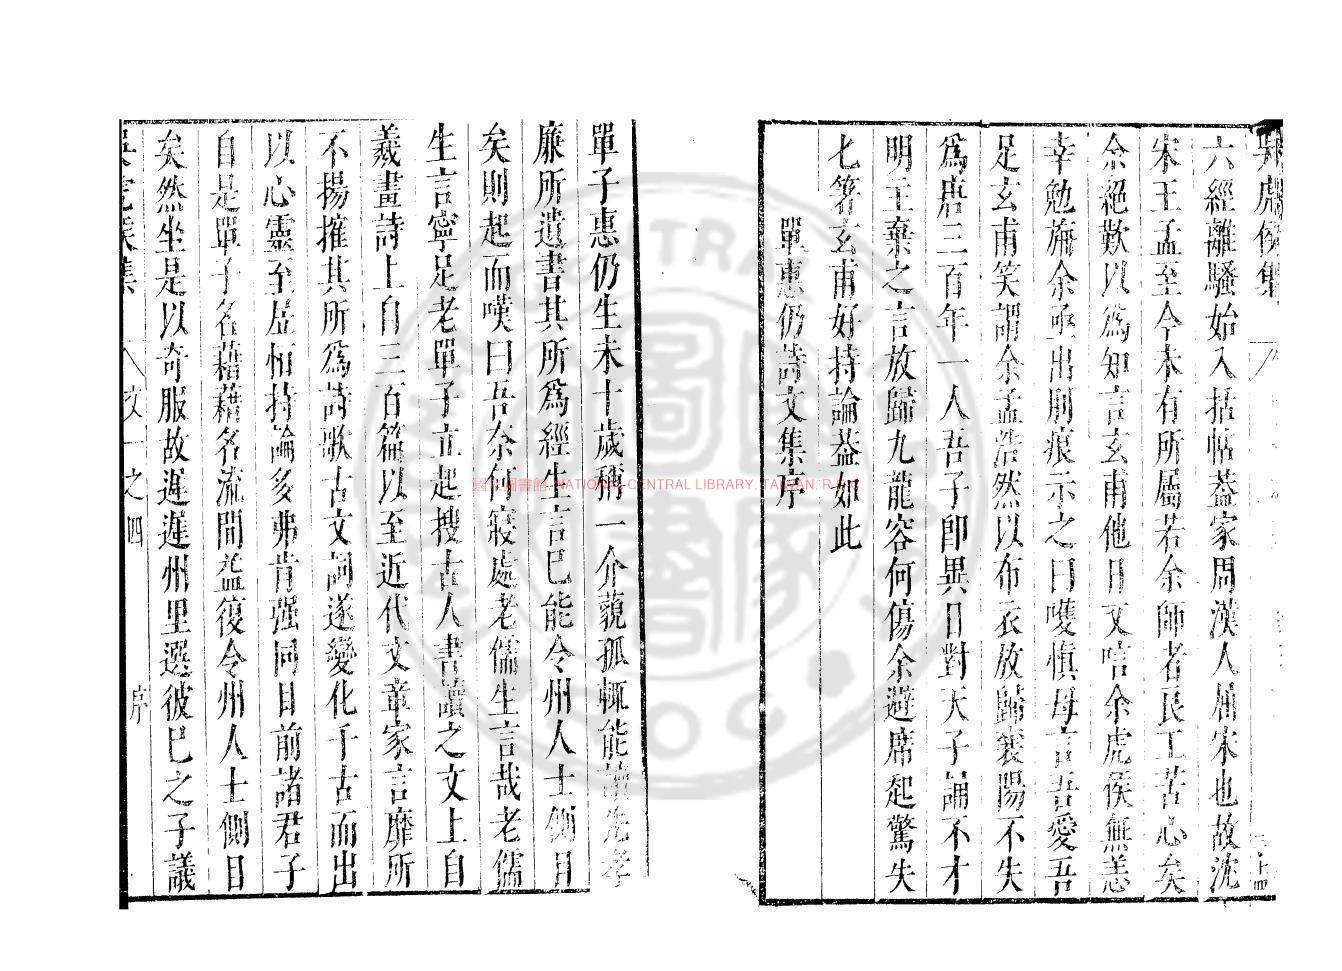 吳虎侯集
六經離騷始入括帖葢家周漢人屈宋也故沈
宋王孟至今本有所屬若余師者良工苦心矣
余絕歎以爲知言玄甫他日又唁余虎侯無恙
幸勉旃余亟出刖痕示之曰嘎慎毋言吾愛吾
足玄甫笑謂余孟浩然以布衣放歸襄陽不失
爲唐三百年一人吾子卽異日對天子誦不才
明王棄之言放歸九龍容何傷余避席起驚失
匕箸玄甫好持論葢如此
單惠仍詩文集序
單子惠仍生未十歲稱一介藐孤輒能讀先孝
廉所遺書其所爲經生言已能令州人士側目
矣則起而嘆曰吾奈何寢處老儒生言哉老儒
生言寧足老單子立起搜古人書讀之文上自
羲畫詩上自三百篇以至近代文章家言靡所
不揚搉其所爲詩歌古文詞遂變化于古而出
以心靈至居恒持論多弗肯强同目前諸君子
自是單子名藉藉名流間益復令州人士側目
矣然坐是以奇服故遲遲州里選彼已之子議
吳虎侯集 文一之四 序
國家圖書館 NATIONAL CENTRAL LIBRARY, TAIWAN. R.O.C